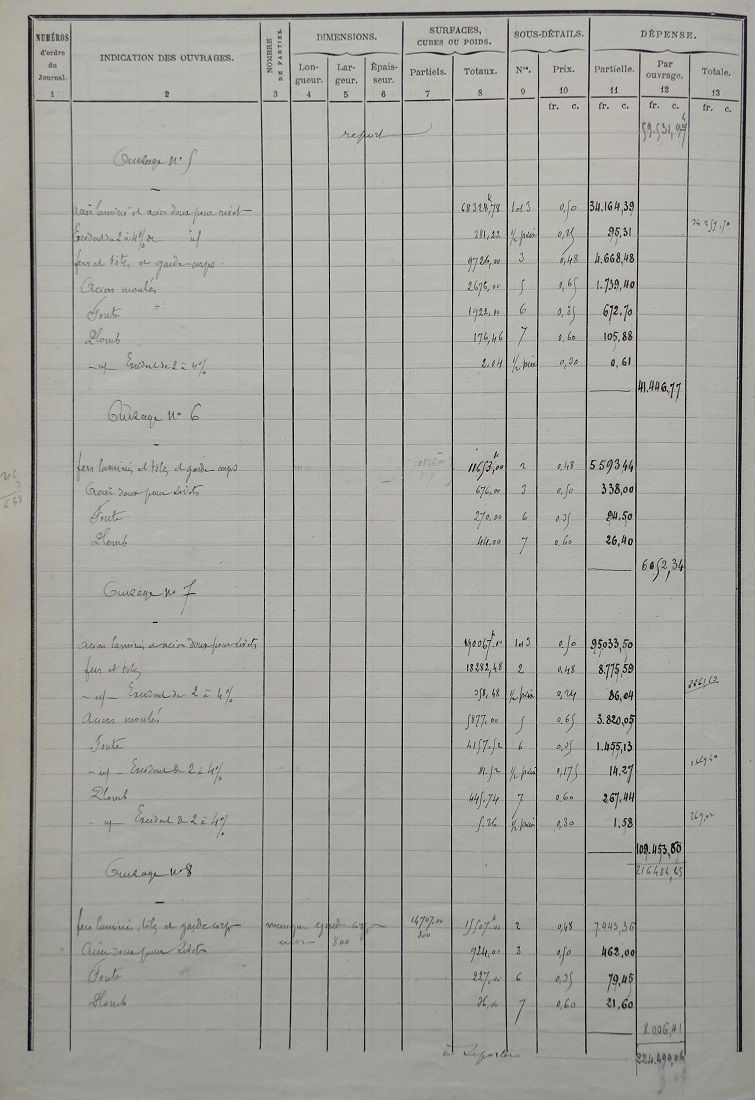 NUMÉROS d'ordre du Journal. 1
INDICATION DES OUVRAGES. 2
NOMBRE DE PARTIES. 3
DIMENSIONS.
Lon- gueur. 4
Lar- geur. 5
Épais- seur. 6
SURFACES, CUBES OU POIDS.
Partiels. 7
Totaux. 8
SOUS-DÉTAILS.
Nos. 9
Prix. 10
DÉPENSE.
Partielle. 11
Par ouvrage. 12
Totale. 13
fr. c. fr. c. fr. c. fr. c.
report
Ouvrage n° 5
acier laminé et acier doux pour rivet 68328,78 1 et 3 0,50 34.164,39
Excédent du 2 à 4% 381,22 1/2 prix 0,25 95,31
fers et tôles et garde-corps 9726,00 3 0,48 4.668,48
Aciers moulés 2676,00 5 0,65 1.739,40
Fonte 1922,00 6 0,35 672,70
Plomb 176,46 7 0,60 105,88
Excédent de 2 à 4% 2.04 1/2 prix 0,30 0,61
41.446,77
Ouvrage n° 6
fers laminés et tôles et garde-corps 11653,00 2 0,48 5593,44
Acier doux pour rivets 676,00 3 0,50 338,00
Fonte 270,00 6 0,35 94,50
Plomb 44,00 7 0,60 26,40
6052,34
Ouvrage n° 7
aciers laminés et acier doux pour rivets 190067,00 1 et 3 0,50 95033,50
fers et tôles 18282,48 2 0,48 8.775,59
Excédent de 2 à 4% 358,48 1/2 prix 0,24 86,04
Aciers moulés 5877,00 5 0,65 3.820,05
Fonte 4157,52 6 0,35 1.455,13
Excédent de 2 à 4% 81,52 1/2 prix 0,175 14,27
Plomb 445,74 7 0,60 267,44
Excédent de 2 à 4% 5.26 1/2 prix 0,30 1,58
109.453,60
Ouvrage n° 8
fers laminés, tôles et garde corps manque garde corps 14707,00 15507,00 2 0,48 7443,36
800 800
Acier doux pour rivets 924,00 3 0,50 462,00
Fonte 227,00 6 0,35 79,45
Plomb 36,00 7 0,60 21,60
8.006,41
à reporter 224.490,06